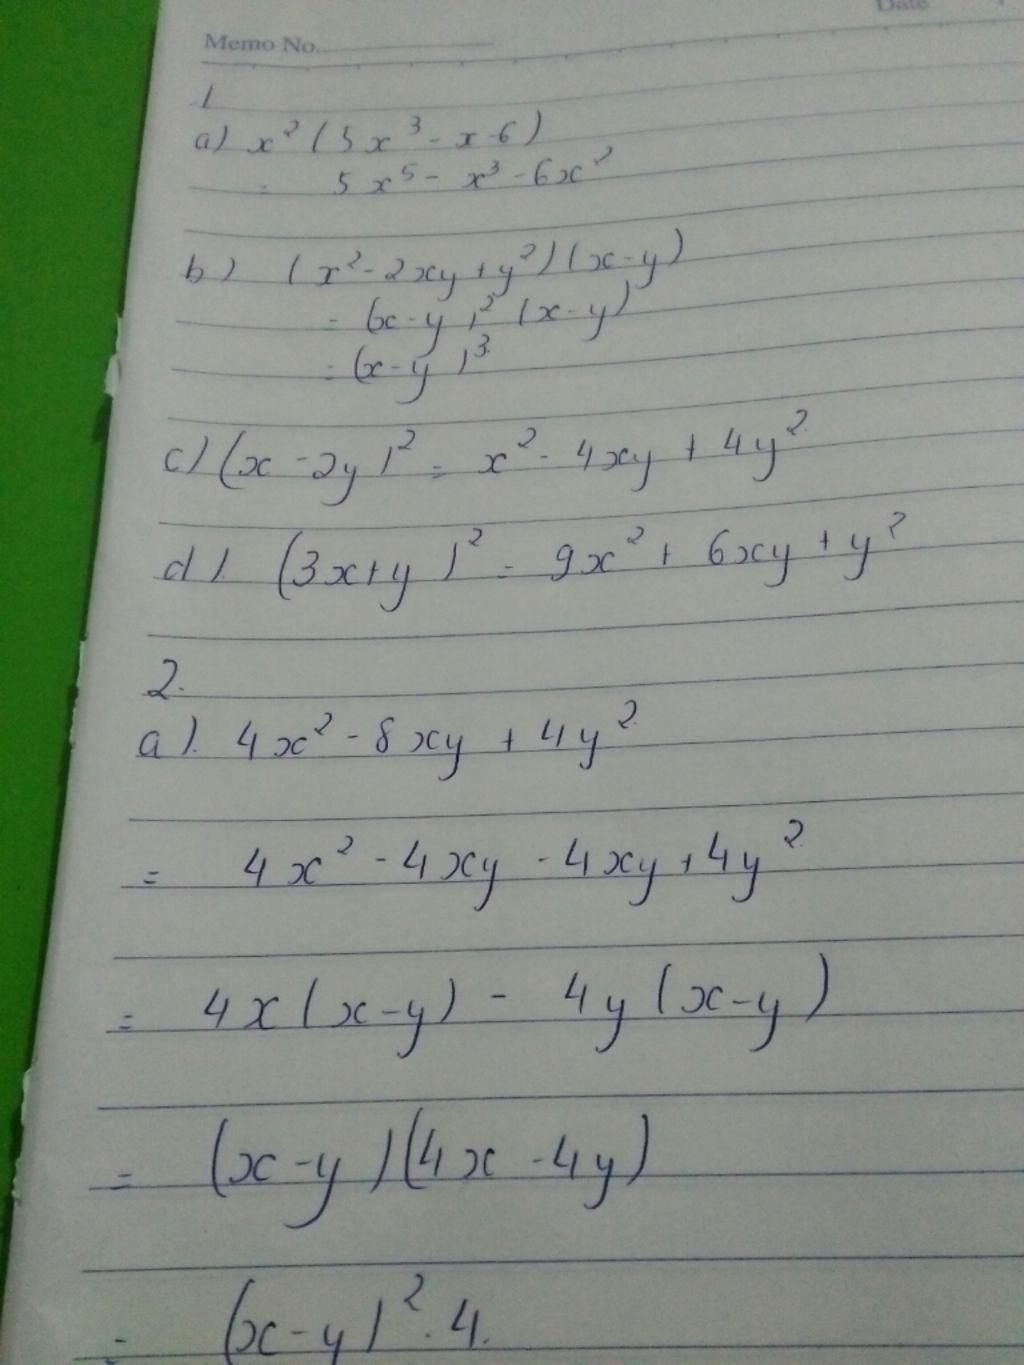 Date
Memo No.
1
a) x² (5x³ - x - 6)
= 5x⁵ - x³ - 6x²
b) (x² - 2xy + y²)(x - y)
= (x - y)² (x - y)
= (x - y)³
c) (x - 2y)² = x² - 4xy + 4y²
d). (3x + y)² = 9x² + 6xy + y²
2.
a). 4x² - 8xy + 4y²
= 4x² - 4xy - 4xy + 4y²
= 4x(x - y) - 4y(x - y)
= (x - y)(4x - 4y)
= (x - y)² . 4.